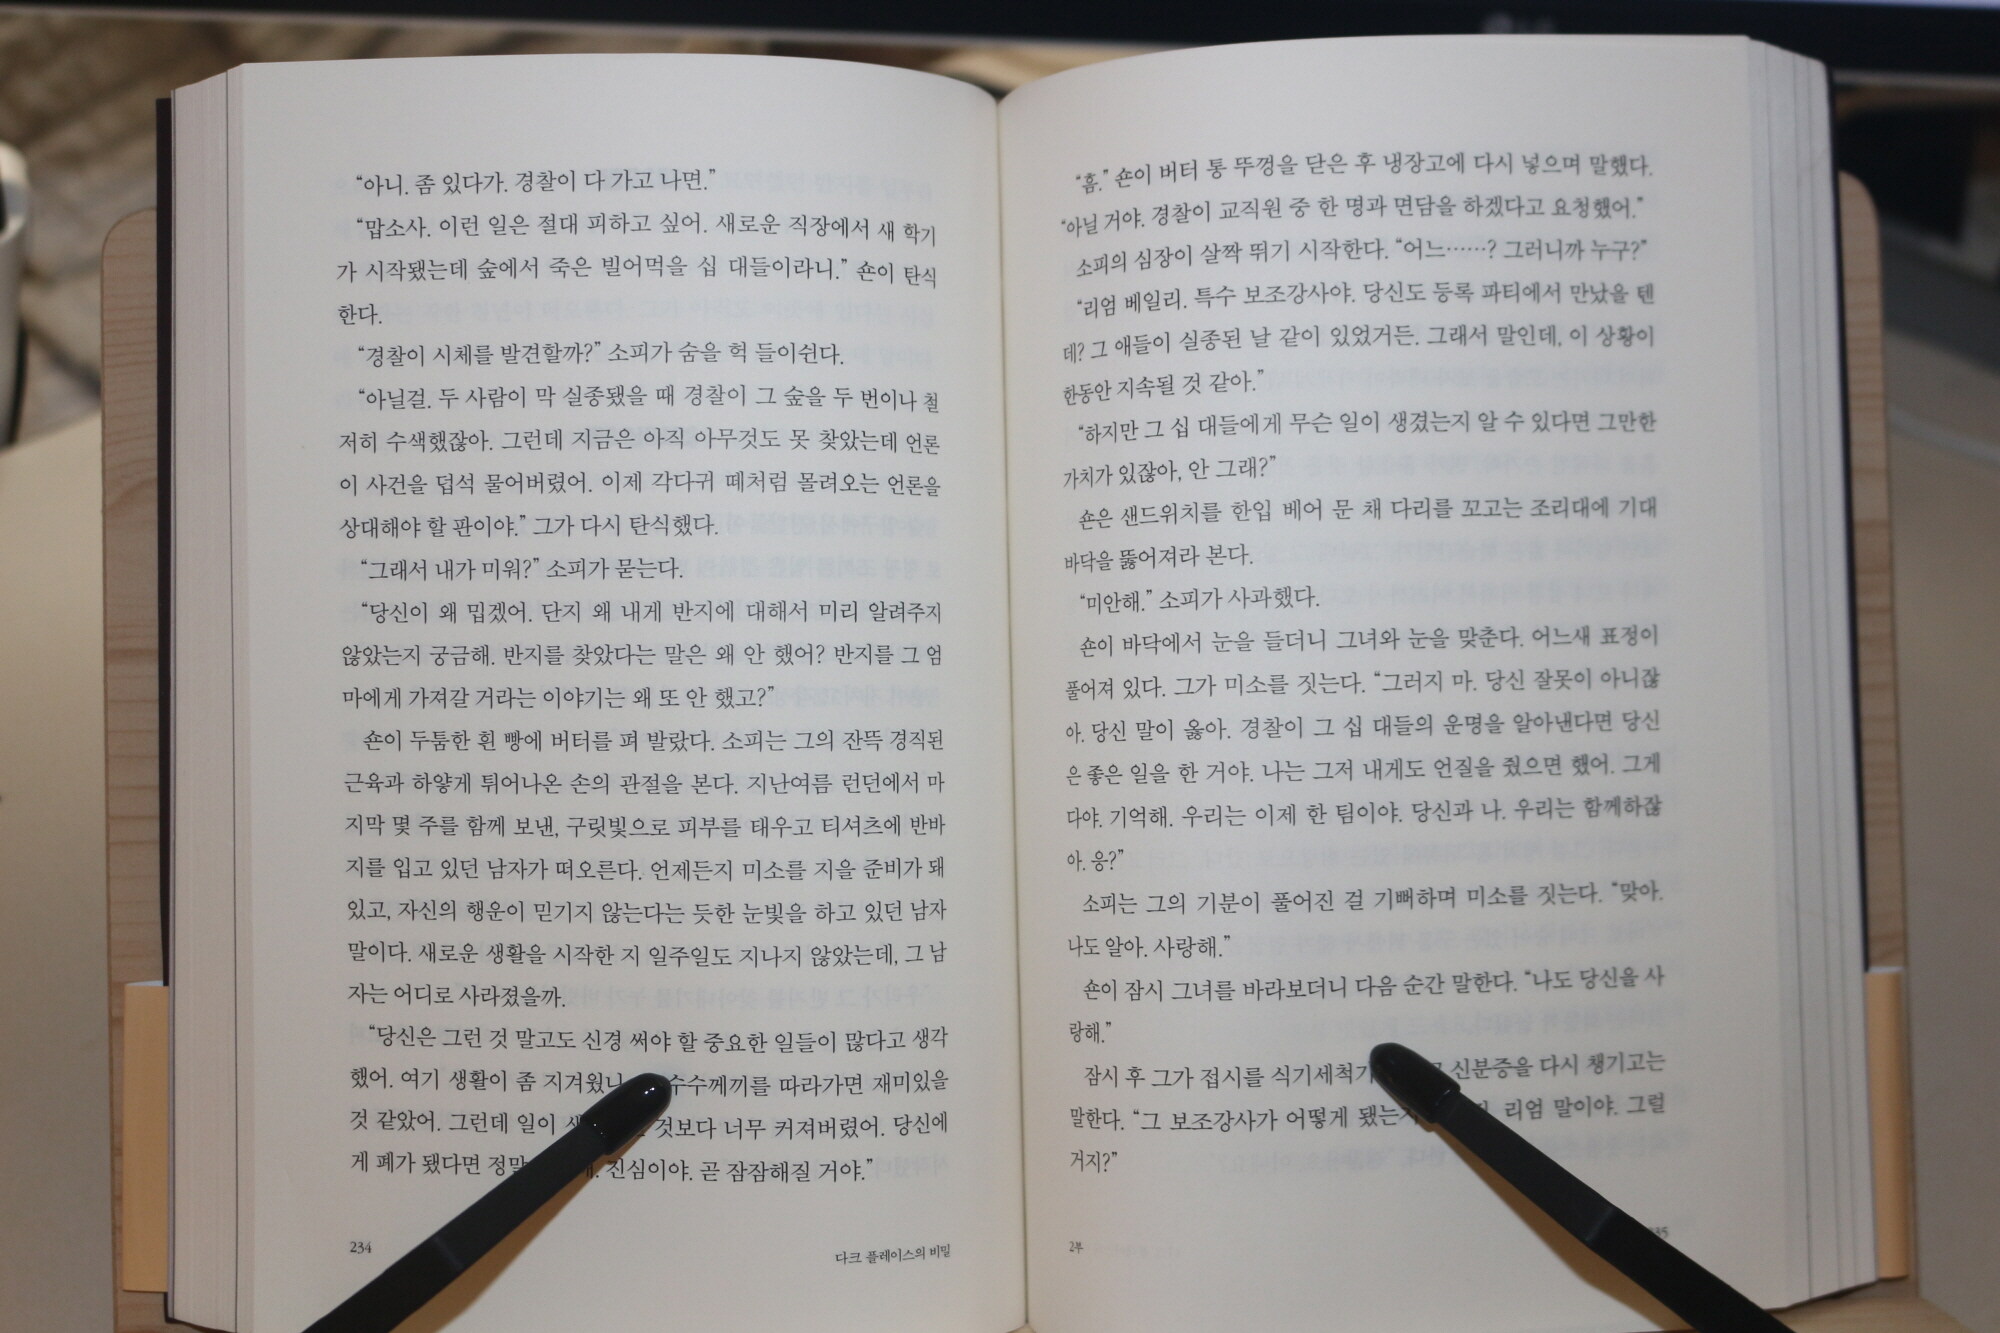 “아니. 좀 있다가. 경찰이 다 가고 나면.”
“맙소사. 이런 일은 절대 피하고 싶어. 새로운 직장에서 새 학기
가 시작됐는데 숲에서 죽은 빌어먹을 십 대들이라니.” 숀이 탄식
한다.
“경찰이 시체를 발견할까?” 소피가 숨을 헉 들이쉰다.
“아닐걸. 두 사람이 막 실종됐을 때 경찰이 그 숲을 두 번이나 철
저히 수색했잖아. 그런데 지금은 아직 아무것도 못 찾았는데 언론
이 사건을 덥석 물어버렸어. 이제 각다귀 떼처럼 몰려오는 언론을
상대해야 할 판이야.” 그가 다시 탄식했다.
“그래서 내가 미워?” 소피가 묻는다.
“당신이 왜 밉겠어. 단지 왜 내게 반지에 대해서 미리 알려주지
않았는지 궁금해. 반지를 찾았다는 말은 왜 안 했어? 반지를 그 엄
마에게 가져갈 거라는 이야기는 왜 또 안 했고?”
숀이 두툼한 흰 빵에 버터를 펴 발랐다. 소피는 그의 잔뜩 경직된
근육과 하얗게 튀어나온 손의 관절을 본다. 지난여름 런던에서 마
지막 몇 주를 함께 보낸, 구릿빛으로 피부를 태우고 티셔츠에 반바
지를 입고 있던 남자가 떠오른다. 언제든지 미소를 지을 준비가 돼
있고, 자신의 행운이 믿기지 않는다는 듯한 눈빛을 하고 있던 남자
말이다. 새로운 생활을 시작한 지 일주일도 지나지 않았는데, 그 남
자는 어디로 사라졌을까.
“당신은 그런 것 말고도 신경 써야 할 중요한 일들이 많다고 생각
했어. 여기 생활이 좀 지겨웠나 수수께끼를 따라가면 재미있을
것 같았어. 그런데 일이 것보다 너무 커져버렸어. 당신에
게 폐가 됐다면 정말 진심이야. 곧 잠잠해질 거야.”
234
다크 플레이스의 비밀
“흠.” 숀이 버터 통 뚜껑을 닫은 후 냉장고에 다시 넣으며 말했다.
“아닐 거야. 경찰이 교직원 중 한 명과 면담을 하겠다고 요청했어.”
소피의 심장이 살짝 뛰기 시작한다. “어느……? 그러니까 누구?”
“리엄 베일리. 특수 보조강사야. 당신도 등록 파티에서 만났을 텐
데? 그 애들이 실종된 날 같이 있었거든. 그래서 말인데, 이 상황이
한동안 지속될 것 같아.”
“하지만 그 십 대들에게 무슨 일이 생겼는지 알 수 있다면 그만한
가치가 있잖아, 안 그래?”
숀은 샌드위치를 한입 베어 문 채 다리를 꼬고는 조리대에 기대
바닥을 뚫어져라 본다.
“미안해.” 소피가 사과했다.
숀이 바닥에서 눈을 들더니 그녀와 눈을 맞춘다. 어느새 표정이
풀어져 있다. 그가 미소를 짓는다. “그러지 마. 당신 잘못이 아니잖
아. 당신 말이 옳아. 경찰이 그 십 대들의 운명을 알아낸다면 당신
은 좋은 일을 한 거야. 나는 그저 내게도 언질을 줬으면 했어. 그게
다야. 기억해. 우리는 이제 한 팀이야. 당신과 나. 우리는 함께하잖
아. 응?”
소피는 그의 기분이 풀어진 걸 기뻐하며 미소를 짓는다. “맞아.
나도 알아. 사랑해.”
숀이 잠시 그녀를 바라보더니 다음 순간 말한다. “나도 당신을 사
랑해.”
잠시 후 그가 접시를 식기세척기 신분증을 다시 챙기고는
말한다. “그 보조강사가 어떻게 됐는지 리엄 말이야. 그럴
거지?”
2부